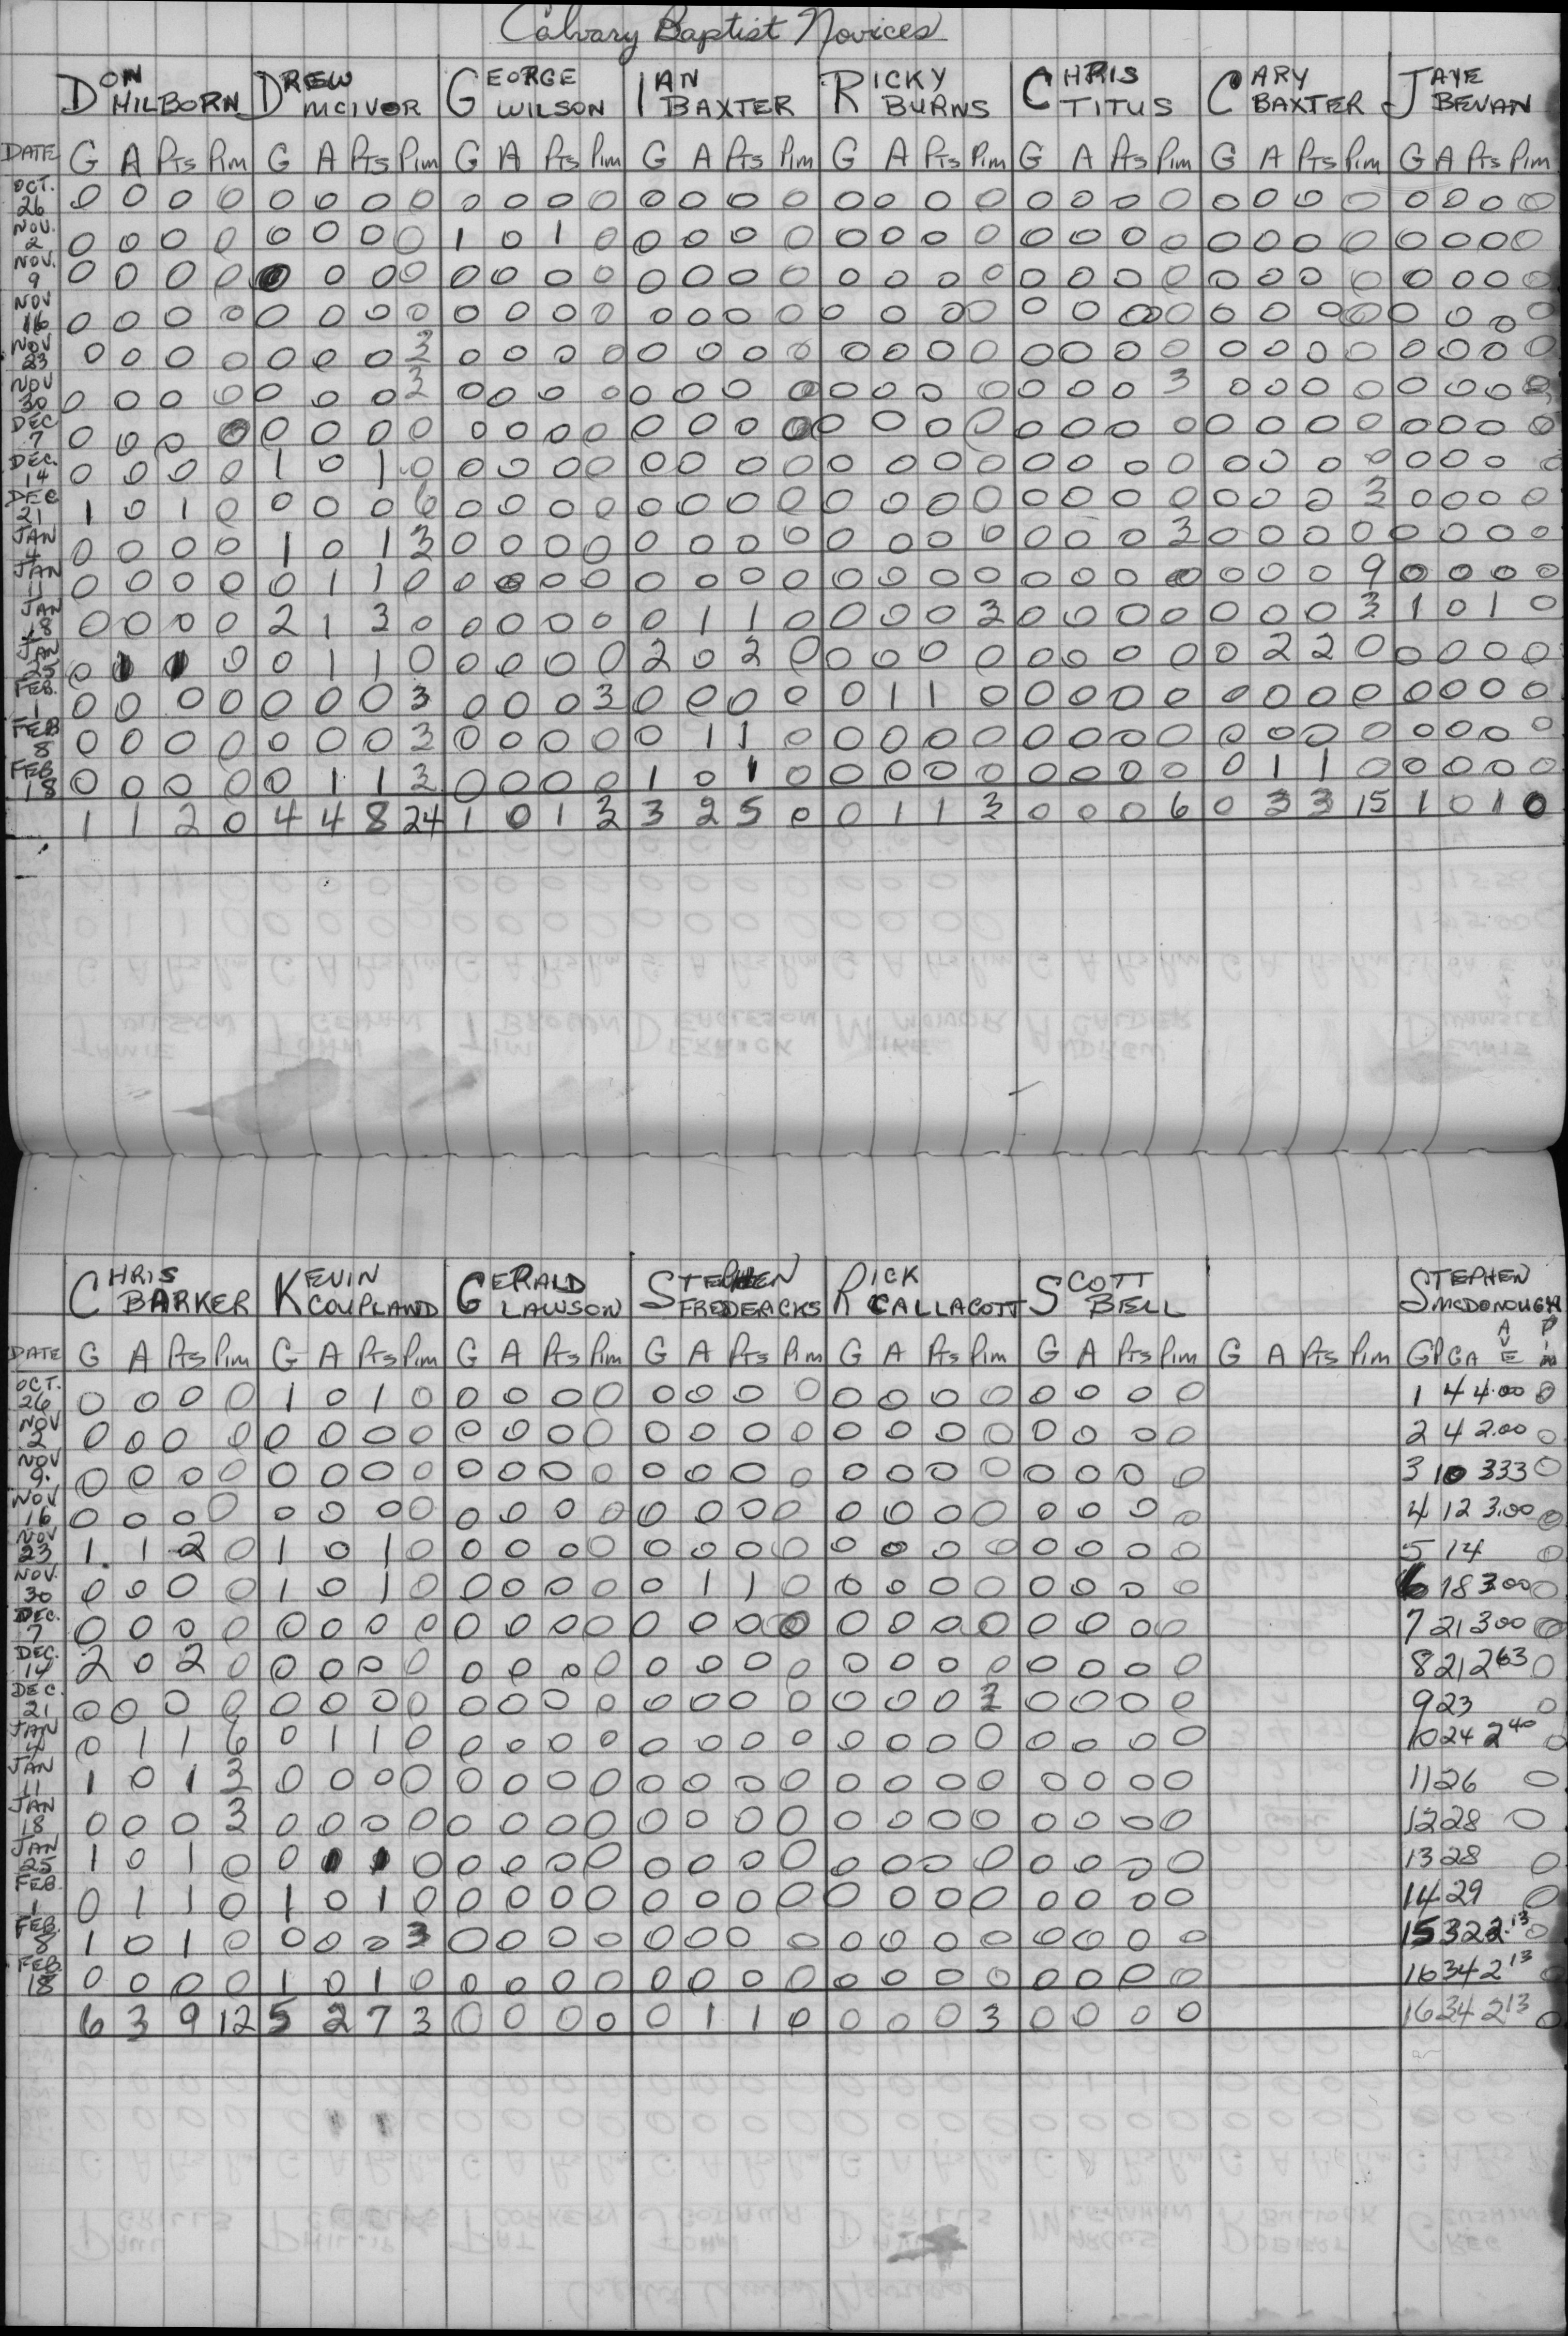 Calvary Baptist Novices
DON HILBORN DREW MCIVOR GEORGE WILSON IAN BAXTER RICKY BURNS CHRIS TITUS CARY BAXTER JAYE BEVAN
DATE G A Pts Pim G A Pts Pim G A Pts Pim G A Pts Pim G A Pts Pim G A Pts Pim G A Pts Pim G A Pts Pim
OCT. 26 0 0 0 0 0 0 0 0 0 0 0 0 0 0 0 0 0 0 0 0 0 0 0 0 0 0 0 0 0 0 0 0
NOV. 2 0 0 0 0 0 0 0 0 1 0 1 0 0 0 0 0 0 0 0 0 0 0 0 0 0 0 0 0 0 0 0 0
NOV. 9 0 0 0 0 0 0 0 0 0 0 0 0 0 0 0 0 0 0 0 0 0 0 0 0 0 0 0 0 0 0 0 0
NOV 16 0 0 0 0 0 0 0 0 0 0 0 0 0 0 0 0 0 0 0 0 0 0 0 0 0 0 0 0 0 0 0 0
NOV 23 0 0 0 0 0 0 0 3 0 0 0 0 0 0 0 0 0 0 0 0 0 0 0 0 0 0 0 0 0 0 0 0
NOV 30 0 0 0 0 0 0 0 3 0 0 0 0 0 0 0 0 0 0 0 0 0 0 0 3 0 0 0 0 0 0 0 0
DEC 7 0 0 0 0 0 0 0 0 0 0 0 0 0 0 0 0 0 0 0 0 0 0 0 0 0 0 0 0 0 0 0 0
DEC. 14 0 0 0 0 1 0 1 0 0 0 0 0 0 0 0 0 0 0 0 0 0 0 0 0 0 0 0 0 0 0 0 0
DEC 21 1 0 1 0 0 0 0 6 0 0 0 0 0 0 0 0 0 0 0 0 0 0 0 0 0 0 0 3 0 0 0 0
JAN 4 0 0 0 0 1 0 1 3 0 0 0 0 0 0 0 0 0 0 0 0 0 0 0 3 0 0 0 0 0 0 0 0
JAN 11 0 0 0 0 0 1 1 0 0 0 0 0 0 0 0 0 0 0 0 0 0 0 0 0 0 0 0 9 0 0 0 0
JAN 18 0 0 0 0 2 1 3 0 0 0 0 0 0 1 1 0 0 0 0 3 0 0 0 0 0 0 0 3 1 0 1 0
JAN 25 0 1 1 0 0 1 1 0 0 0 0 0 2 0 2 0 0 0 0 0 0 0 0 0 0 2 2 0 0 0 0 0
FEB. 1 0 0 0 0 0 0 0 3 0 0 0 3 0 0 0 0 0 1 1 0 0 0 0 0 0 0 0 0 0 0 0 0
FEB 8 0 0 0 0 0 0 0 3 0 0 0 0 0 1 1 0 0 0 0 0 0 0 0 0 0 0 0 0 0 0 0 0
FEB. 18 0 0 0 0 0 1 1 3 0 0 0 0 1 0 1 0 0 0 0 0 0 0 0 0 0 1 1 0 0 0 0 0
1 1 2 0 4 4 8 24 1 0 1 3 3 2 5 0 0 1 1 3 0 0 0 6 0 3 3 15 1 0 1 0
CHRIS BARKER KEVIN COUPLAND GERALD LAWSON STEPHEN FREDERCKS RICK CALLACOTT SCOTT BELL STEPHEN MCDONOUGH
DATE G A Pts Pim G A Pts Pim G A Pts Pim G A Pts Pim G A Pts Pim G A Pts Pim G A Pts Pim GP GA AVE Pim
OCT. 26 0 0 0 0 1 0 1 0 0 0 0 0 0 0 0 0 0 0 0 0 0 0 0 0 1 4 4.00 0
NOV 2 0 0 0 0 0 0 0 0 0 0 0 0 0 0 0 0 0 0 0 0 0 0 0 0 2 4 2.00 0
NOV 9. 0 0 0 0 0 0 0 0 0 0 0 0 0 0 0 0 0 0 0 0 0 0 0 0 3 10 333 0
NOV 16 0 0 0 0 0 0 0 0 0 0 0 0 0 0 0 0 0 0 0 0 0 0 0 0 4 12 3.00 0
NOV 23 1 1 2 0 1 0 1 0 0 0 0 0 0 0 0 0 0 0 0 0 0 0 0 0 5 14 0
NOV. 30 0 0 0 0 1 0 1 0 0 0 0 0 0 1 1 0 0 0 0 0 0 0 0 0 6 18 3.00 0
DEC. 7 0 0 0 0 0 0 0 0 0 0 0 0 0 0 0 0 0 0 0 0 0 0 0 0 7 21 300 0
DEC. 14 2 0 2 0 0 0 0 0 0 0 0 0 0 0 0 0 0 0 0 0 0 0 0 0 8 21 263 0
DEC. 21 0 0 0 0 0 0 0 0 0 0 0 0 0 0 0 0 0 0 0 3 0 0 0 0 9 23 0
JAN 4 0 1 1 6 0 1 1 0 0 0 0 0 0 0 0 0 0 0 0 0 0 0 0 0 10 24 240 0
JAN 11 1 0 1 3 0 0 0 0 0 0 0 0 0 0 0 0 0 0 0 0 0 0 0 0 11 26 0
JAN 18 0 0 0 3 0 0 0 0 0 0 0 0 0 0 0 0 0 0 0 0 0 0 0 0 12 28 0
JAN 25 1 0 1 0 0 1 1 0 0 0 0 0 0 0 0 0 0 0 0 0 0 0 0 0 13 28 0
FEB. 1 0 1 1 0 1 0 1 0 0 0 0 0 0 0 0 0 0 0 0 0 0 0 0 0 14 29 0
FEB. 8 1 0 1 0 0 0 0 3 0 0 0 0 0 0 0 0 0 0 0 0 0 0 0 0 15 32 2.13 0
FEB. 18 0 0 0 0 1 0 1 0 0 0 0 0 0 0 0 0 0 0 0 0 0 0 0 0 16 34 213 0
6 3 9 12 5 2 7 3 0 0 0 0 0 1 1 0 0 0 0 3 0 0 0 0 16 34 213 0